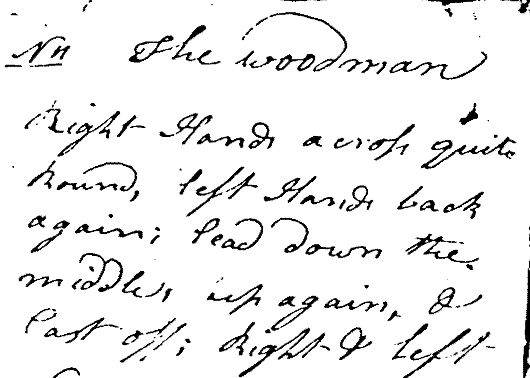 No The Woodman
Right Hands across quite
Round, left Hands back
again; lead down the
middle, up again, &
Cast off; Right & left